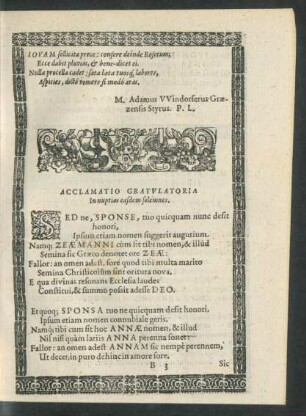 IOVAM sollicita prece: confere deinde Rosetum;
Ecce dabit pluviam, & bene-dicet ei.
Nulla procella cadet: sata lata tuosq́; labores,
Aspicias, dictô tempore si modò aras.
M. Adamus VVindorferus Græ-
zensis Styrus. P. L.
ACCLAMATIO GRATVLATORIA
In nuptias easdem solennes.
SED ne, SPONSE, tuo quicquam nunc desit
honori,
Ipsum etiam nomen suggerit augurium.
Namq́; ZEÆMANNI cùm sit tibi nomen, & illud
Semina sic Græco denotet ore ZEÆ:
Fallor: an omen adest, fore quod tibi multa marito
Semina Christicolûm sint oritura nova,
E quâ divinas resonans Ecclesia laudes
Constitui, & summo possit adesse DEO.
Et quoq; SPONSA tuo ne quicquam desit honori.
Ipsum etiam nomen connubiale geris.
Namq́; tibi cum sit hoc ANNÆ nomen, & illud
Nil nisi quàm latiis ANNA perenna sonet:
Fallor: an omen adest ANNAM sic nempè perennem,
Ut decet, in puro dehinc in amore fore.
B 3 Sic